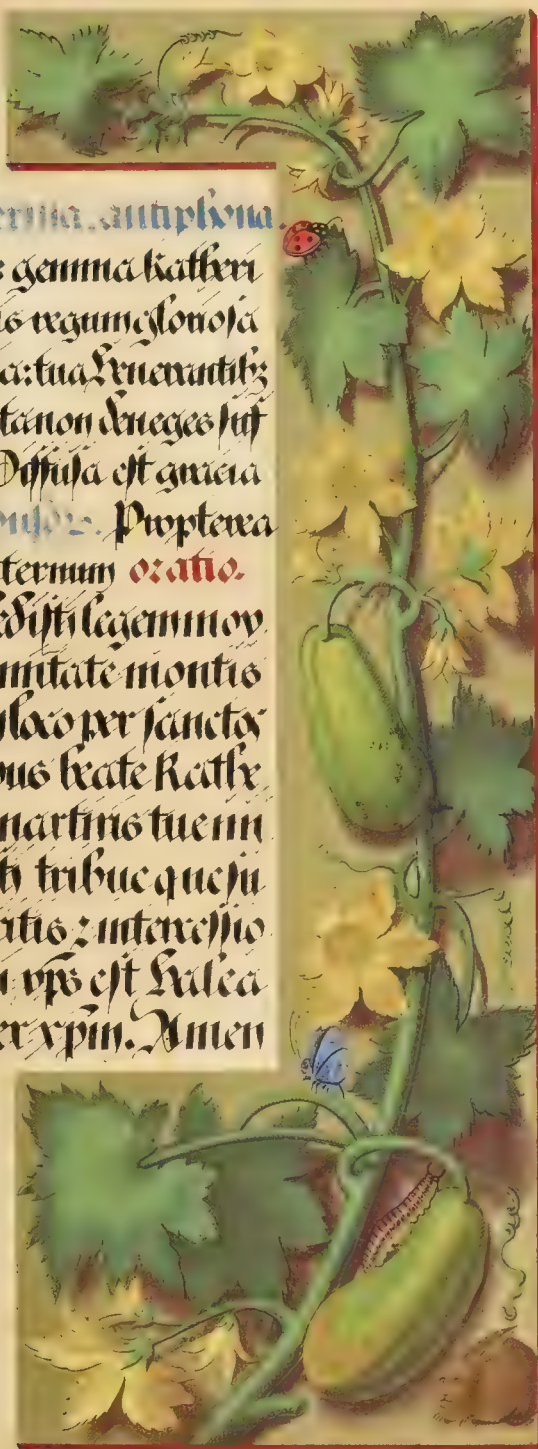 antiphona.
gemma katheri
regum gloriosa
tua venerantib;
non deneges suf
Diffusa est gracia
Propterea
ternum oratio.
disti legem moy
mitate montis
loco per sanctos
pus beate kathe
martiris tue mi
tribue quesu
intercessio
xps est valea
er xpm. Amen